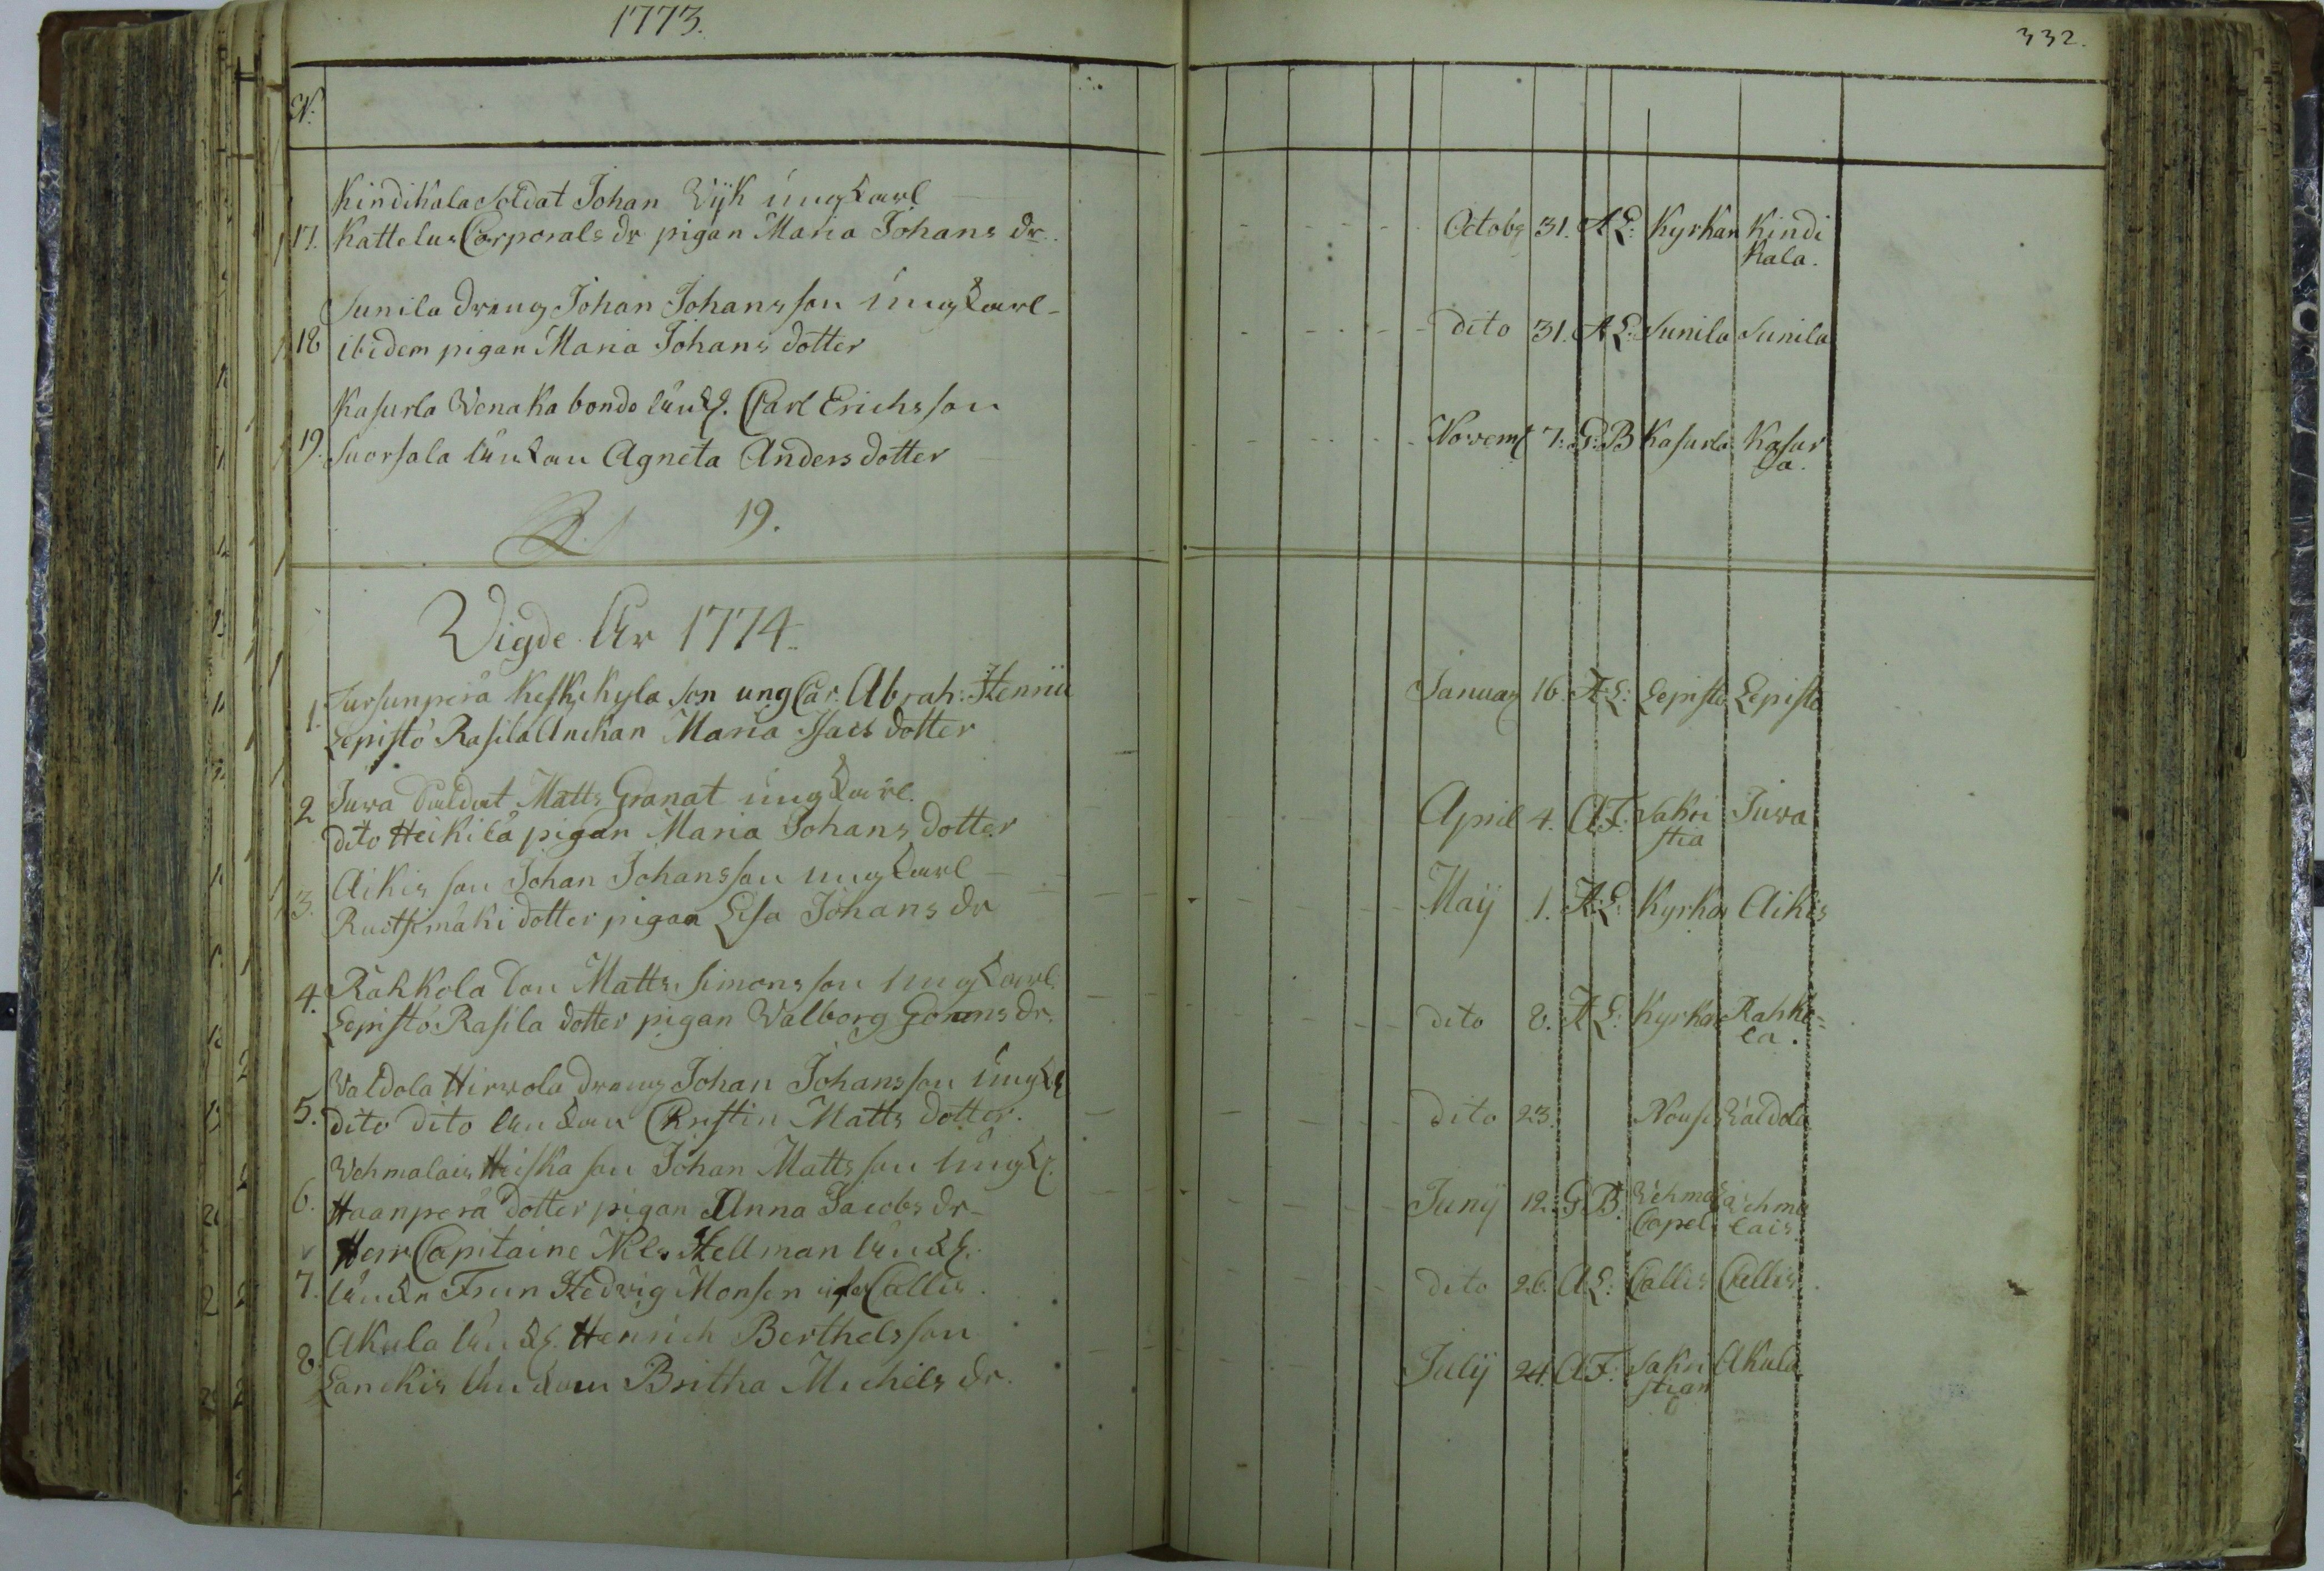 1773.
332.
N:
Kindikala Soldat Johan Wijk ungkarl
17. Kattelus Corporals dr pigan Maria Johans dr.
Octobr 31. A L: Kyrkan Kindi
kala.
Sunila dreng Johan Johansson ungkarl
18 ibidem pigan Maria Johans dotter
dito 31. A L: Sunila Sunila
Kasurla Wenaka bonde Enkl. Carl Erichsson
19. Suorsala Enkan Agneta Anders dotter
Novemb 7. G: B Kasurla Kasur
la.
S. 19.
Vigde År 1774.
Tursunperä Keskikyla son ungkar: Abrah: Henric
1. Lepistö Rasila Enchan Maria Isacs dotter
Januar 16. A: L: Lepisto Lepisto
2 Juva Saldat Matts Granat ungkarl.
dito Heikilä pigan Maria Johans dotter
April 4. A: F: Sakri Juva
stia
3. Aikis son Johan Johansson ungkarl
Ruotsimäki dotter pigan Lisa Johans dr
Maij 1. A: L: Kyrkan Aikis
4. Rahkola Son Matts Simonsson ungkarl
Lepistö Rasila dotter pigan Walborg Görans dr.
dito 8. A L: Kyrkan Rahko=
la.
Valdola Hirvola dreng Johan Johansson ungk
5. dito dito Enkan Christin Matts dotter.
dito 23. Nousis Valdola
Vehmalais Heiska son Johan Mattsson ungk.
6. Haanperä dotter pigan Anna Jacobs dr
Junij 12. G B. Vehma Vehma
Capel lais
Herr Capitaine Nils Hellman Enkl.
7. Enkn Frun Hedvig Monsen Callis.
dito 26. A L: Callis Callis.
Akula Enkl. Henrich Berthelsson
8. Lanckis Enkan Britha Michels dr.
Julij 24. A F: Sakri Akula
stian